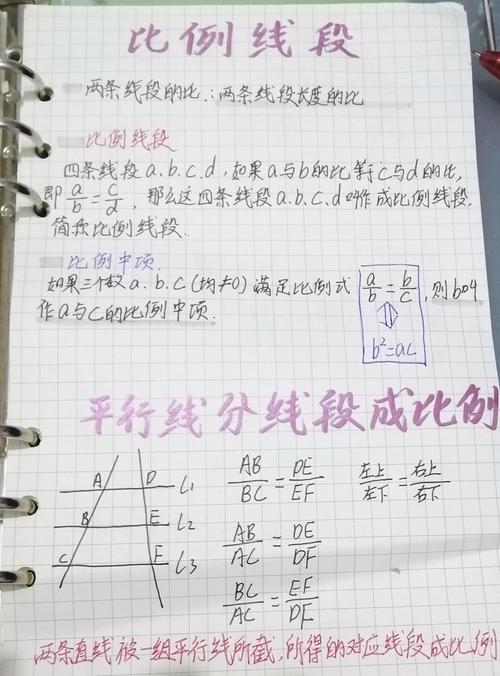 比例线段
两条线段的比:两条线段长度的比
比例线段
四条线段a.b.c.d,如果a与b的比等于c与d的比,
即 a/b=c/d,那么这四条线段a.b.c.d叫作成比例线段,
简称比例线段.
比例中项
如果三个数a.b.c(均≠0)满足比例式 a/b=b/c,则b叫
⇕
作a与c的比例中项.
b²=ac
平行线分线段成比例
A D l1
B E l2
C F l3
AB/BC=DE/EF 左上/左下=右上/右下
AB/AC=DE/DF
BC/AC=EF/DF
两条直线被一组平行线所截,所得的对应线段成比例